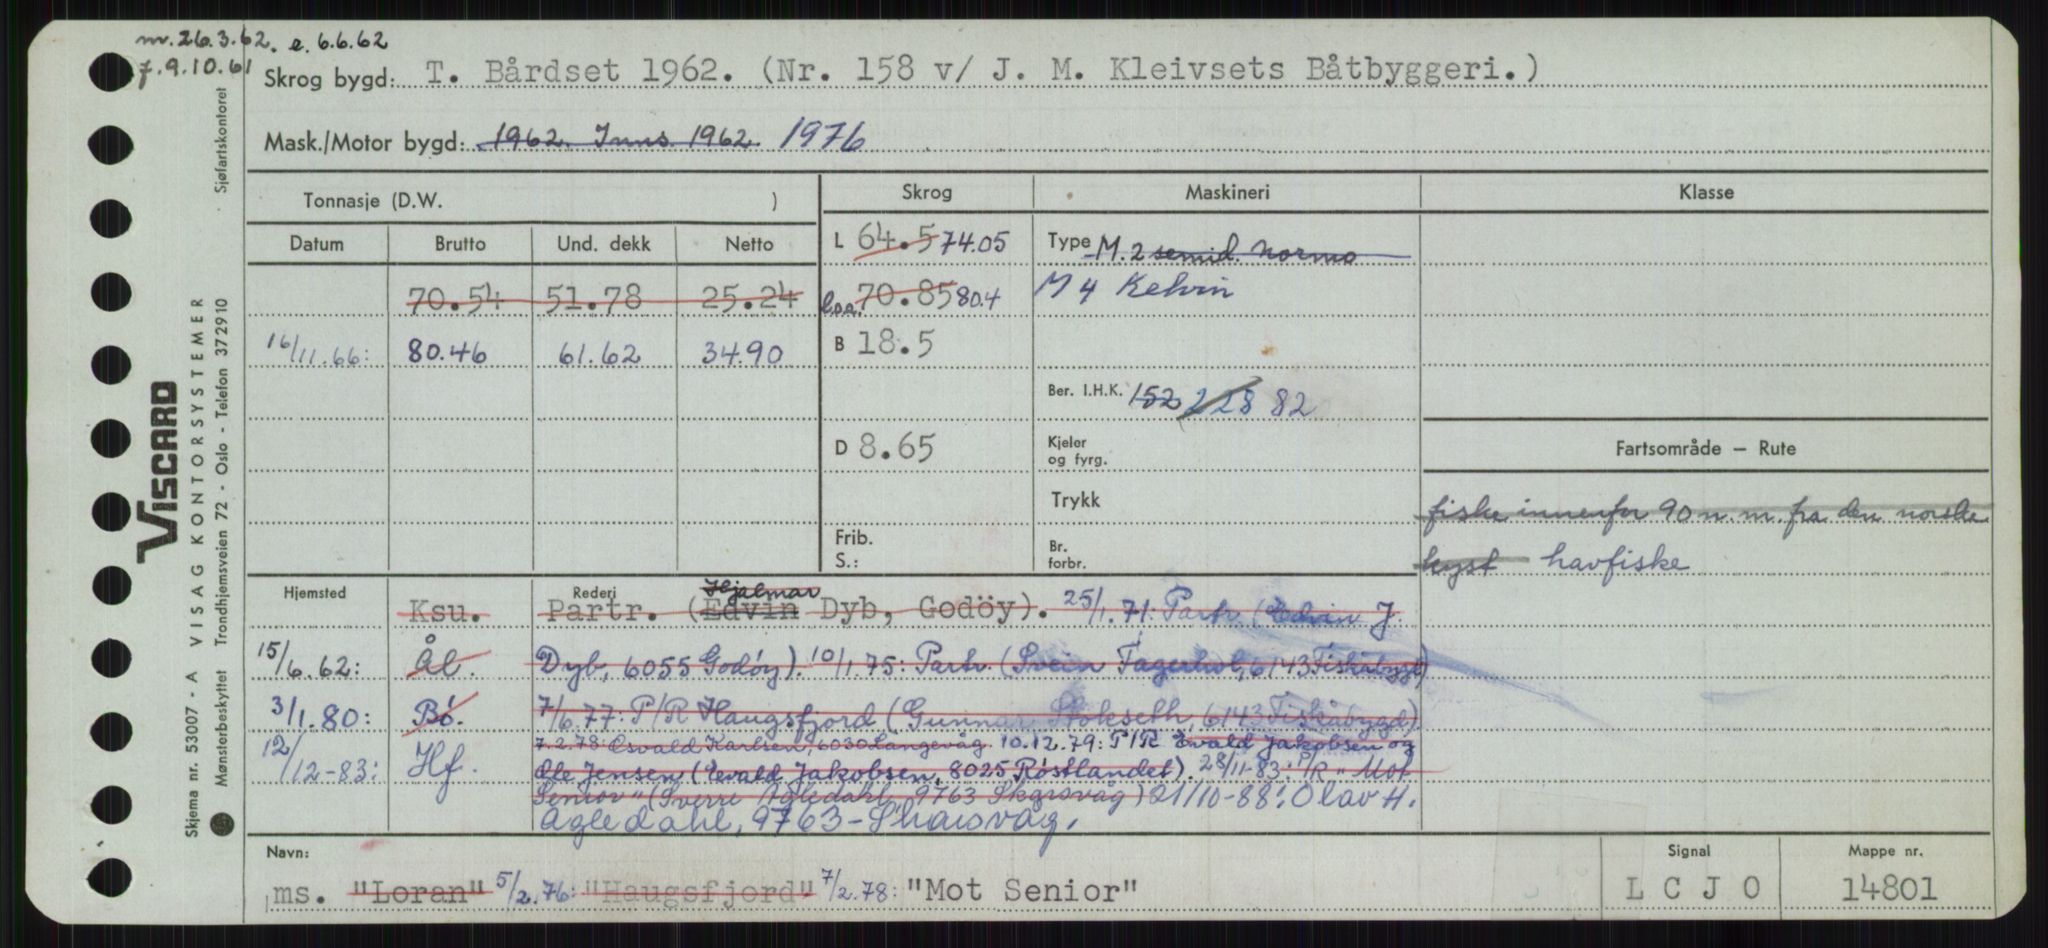 m. 26.3.62. e. 6.6.62
7.9.10.61
Skrog bygd: T. Bårdset 1962. (Nr. 158 v/ J. M. Kleivsets Båtbyggeri.)
Mask./Motor bygd: 1962. Inns. 1962. 1976
Tonnasje (D.W. )
Skrog Maskineri Klasse
Datum Brutto Und. dekk Netto
L 64.5 74.05 Type M. 2 semid. Normo
70.54 51.78 25.24 l.o.a. 70.85 80.4 M 4 Kelvin
16/11.66: 80.46 61.62 34.90 B 18.5
Ber. I.H.K. 152 228 82
D 8.65 Kjeler og fyrg. Fartsområde — Rute
Trykk fiske innenfor 90 n. m. fra den norske
Frib. S.: Br. forbr. kyst havfiske
Hjemsted Rederi Hjalmar
Ksu. Partr. (Edvin Dyb, Godöy). 25/1.71: Partr. (Edvin J.
15/6.62: Ål. Dyb, 6055 Godøy). 10/1.75: Partr. (Svein Fagerhol, 6143 Fiskåbygd)
3/1.80: Bø. 7/6.77: P/R Haugsfjord (Gunnar Stokseth, 6143 Fiskåbygd)
7.2.78 Osvald Karlsen, 6030 Langevåg. 10.12.79: P/R Evald Jakobsen og
12/12-83: Hf. Ole Jensen (Evald Jakobsen, 8025 Røstlandet). 28/11-83: P/R "Mot
Senior" (Sverre Agledahl, 9763 Skarsvåg) 21/10-88: Olav H.
Agledahl, 9763-Skarsvåg.
Navn: Signal Mappe nr.
ms. "Loran" 5/2.76: "Haugsfjord" 7/2.78: "Mot Senior" L C J O 14801
VISCARD
Skjema nr. 53007 - A VISAG KONTORSYSTEMER
Mønsterbeskyttet Trondhjemsveien 72 - Oslo - Telefon 372910 Sjøfartskontoret